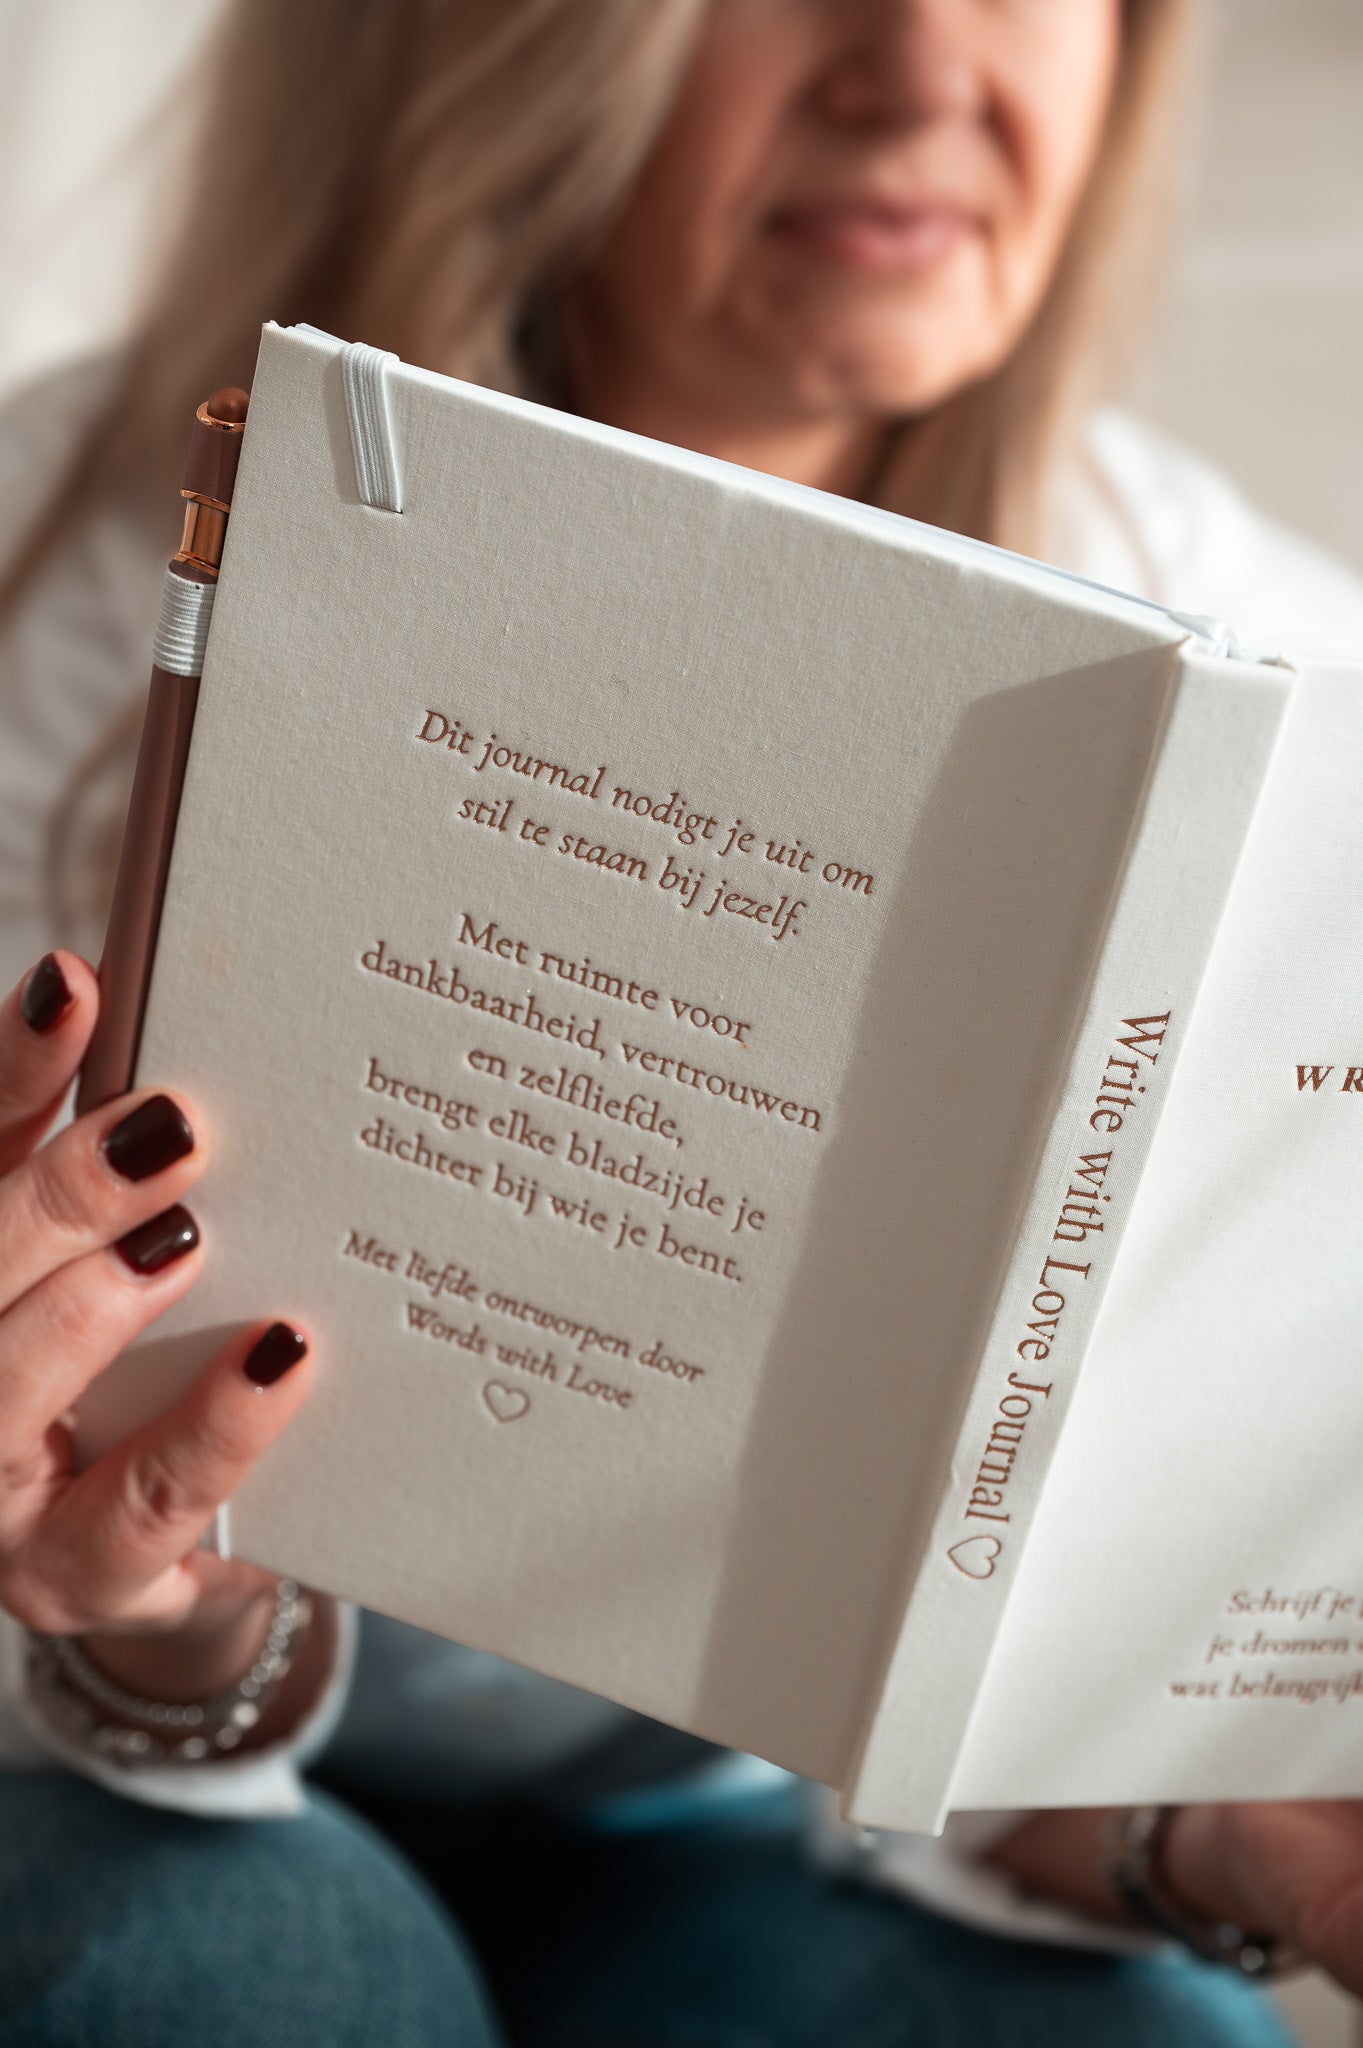 Dit journal nodigt je uit om
stil te staan bij jezelf.
Met ruimte voor
dankbaarheid, vertrouwen
en zelfliefde,
brengt elke bladzijde je
dichter bij wie je bent.
Met liefde ontworpen door
Words with Love
Write with Love Journal
WR
Schrijf je
je dromen
wat belangrijk